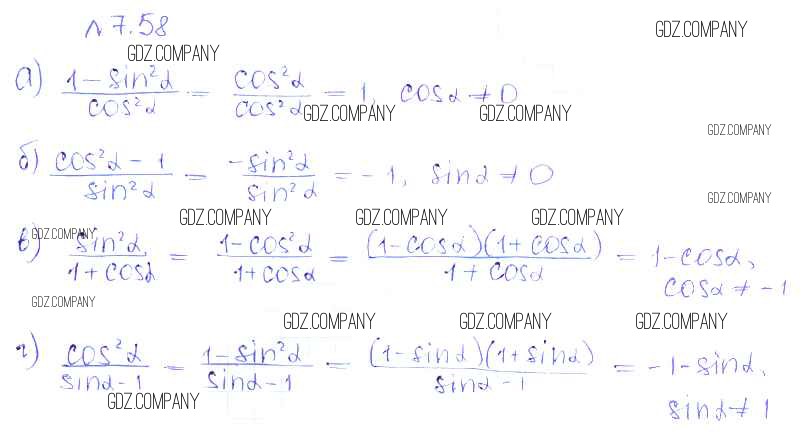 №7.58
GDZ.COMPANY GDZ.COMPANY
а) (1-sin²α)/(cos²α) = (cos²α)/(cos²α) = 1, cosα ≠ 0
GDZ.COMPANY GDZ.COMPANY
GDZ.COMPANY
б) (cos²α - 1)/(sin²α) = (-sin²α)/(sin²α) = -1, sinα ≠ 0
GDZ.COMPANY
GDZ.COMPANY GDZ.COMPANY GDZ.COMPANY
GDZ.COMPANY
в) (sin²α)/(1+cosα) = (1-cos²α)/(1+cosα) = ((1-cosα)(1+cosα))/(1+cosα) = 1-cosα,
cosα ≠ -1
GDZ.COMPANY
GDZ.COMPANY GDZ.COMPANY GDZ.COMPANY
г) (cos²α)/(sinα-1) = (1-sin²α)/(sinα-1) = ((1-sinα)(1+sinα))/(sinα-1) = -1-sinα,
sinα ≠ 1
GDZ.COMPANY